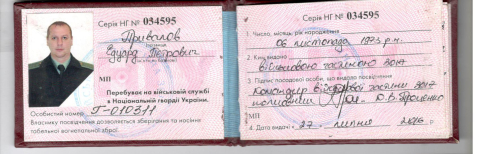 Серія НГ № 034595
Привалов
Едуард Петрович
МП
Перебуває на військовій службі
в Національній гвардії України.
Особистий номер Г-010311
Власнику посвідчення дозволяється зберігання та носіння
табельної вогнепальної зброї.
Серія НГ № 034595
1. Число, місяць, рік народження
06 листопада 1973 р.н.
2. Ким видано
військовою частиною 3017
3. Підпис посадової особи, що видала посвідчення
Командир військової частини 3017
полковник Ю.В.
МП
4. Дата видачі 27 липня 2016